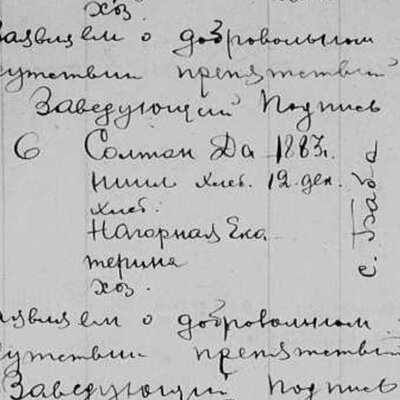 хоз
Заявляем о добровольном
сутствии препятствий
Заведующий Подпись
6 Солтан Да 1883г.
ниил хлеб. 12. дек.
хлеб.
Нагорная Ека
терина
хоз.
с. Баба
аявляем о добровольном
сутствии препятствий
Заведующий Подпись